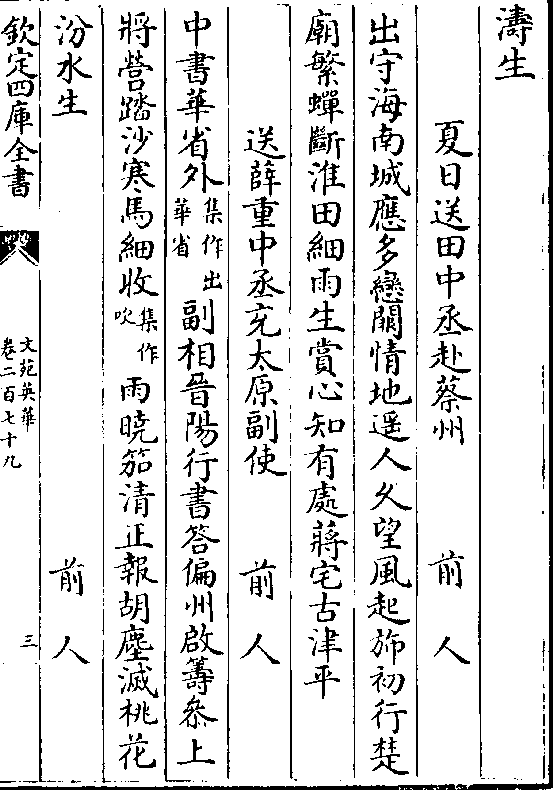 濤生
夏日送田中丞赴蔡州 前人
出守海南城應多戀闕情地遥人久望風起斾初行楚
廟繁蟬斷淮田細雨生賞心知有處蔣宅古津平
送薛重中丞充太原副使 前人
中書華省外集作出華省副相晉陽行書答偏州啟籌叅上
將營踏沙寒馬細收集作吹雨曉笳清正報胡塵滅桃花
汾水生 前人
欽定四庫全書 文苑英華 卷二百七十九 三